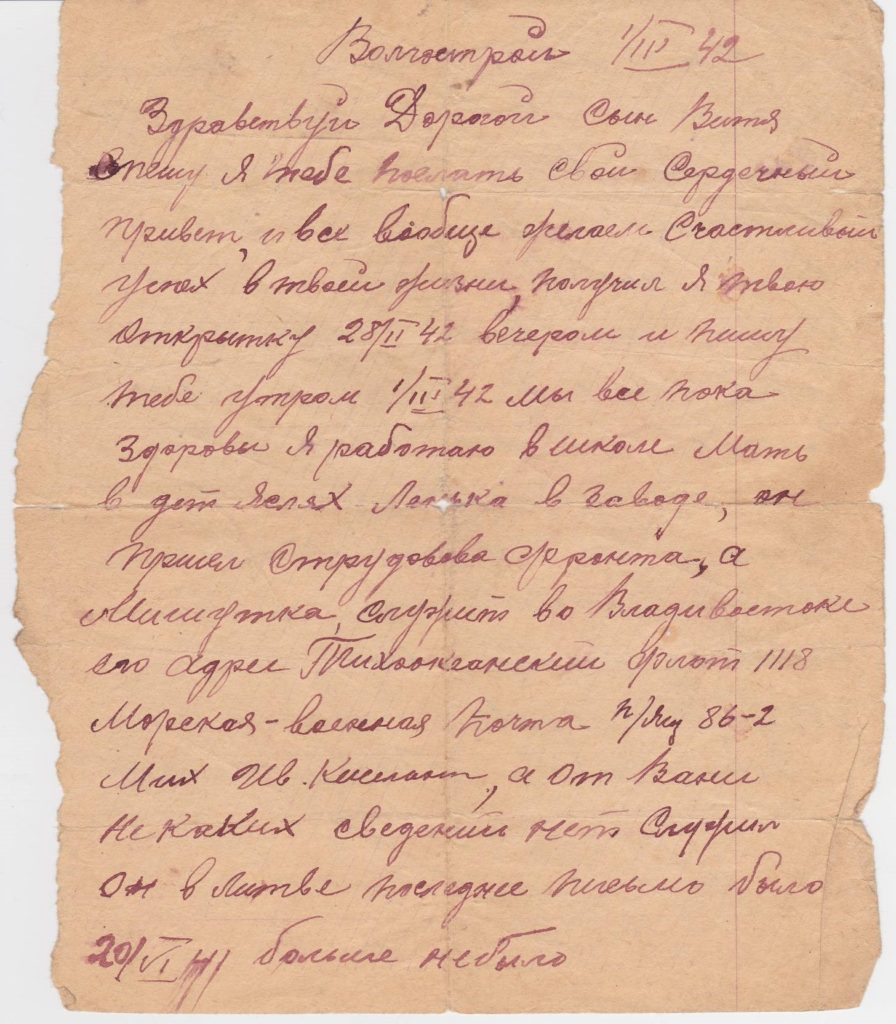 Волгострой 1/III 42
Здравствуй Дорогой Сын Витя
Спешу я тебе послать свой Сердечный
привет, и все вообще желаем Счастливый
успех в твоей жизни, получил я твою
открытку 28/II 42 вечером и пишу
тебе утром 1/III 42 мы все пока
Здоровы я работаю в школе Мать
в дет яслях Ленька в заводе, он
пришел Струдовова фронта, а
Мишутка, служит во Владивостоке
его адрес Тихоокеанский флот 1118
Морская-военная почта п/ящ 86-2
Мих Ив., а от Вани
не каких сведений нет Служил
он в литве последнее письмо было
20/VI 41 больше небыло